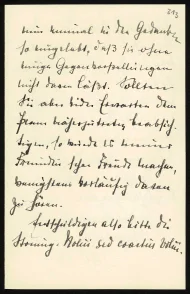 213
nun einmal in den Gedanken
so eingelebt, daß sie ohne
einige Gegenvorstellungen
nicht davon läßt. Sollten
Sie aber wider Erwarten dem
Plane näherzutreten beabsich-
tigen, so würde es meiner
Freundin schon Freude machen,
wenigstens vorläufig davon
zu hören.
Entschuldigen also bitte die
Störung. Nolui sed coactus volui.